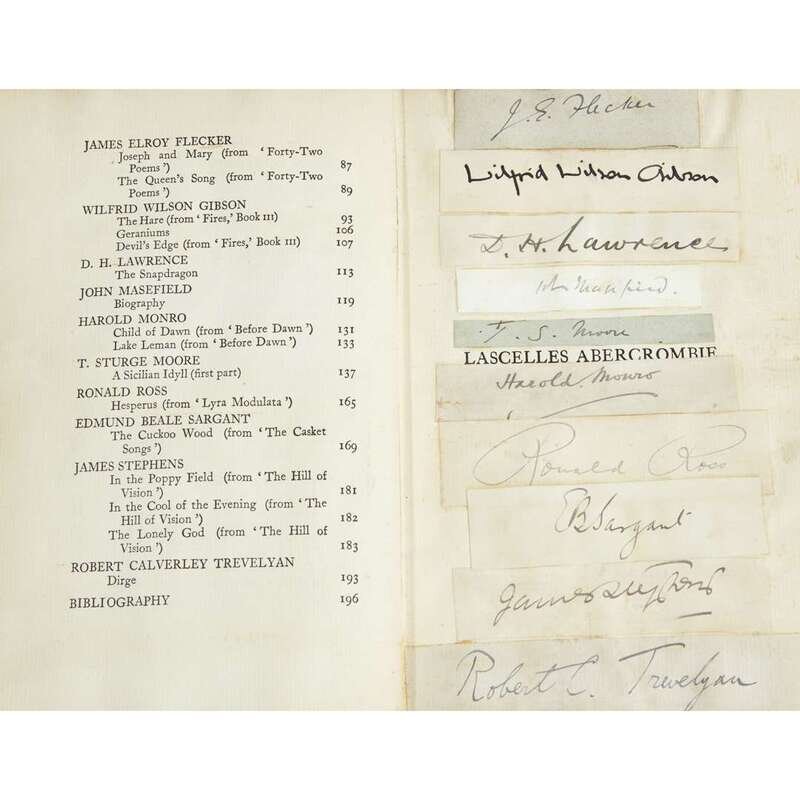 JAMES ELROY FLECKER
Joseph and Mary (from ‘Forty-Two
Poems’) 87
The Queen's Song (from ‘Forty-Two
Poems’) 89
WILFRID WILSON GIBSON
The Hare (from ‘Fires,’ Book III) 93
Geraniums 106
Devil's Edge (from ‘Fires,’ Book III) 107
D. H. LAWRENCE
The Snapdragon 113
JOHN MASEFIELD
Biography 119
HAROLD MONRO
Child of Dawn (from ‘Before Dawn’) 131
Lake Leman (from ‘Before Dawn’) 133
T. STURGE MOORE
A Sicilian Idyll (first part) 137
RONALD ROSS
Hesperus (from ‘Lyra Modulata’) 165
EDMUND BEALE SARGANT
The Cuckoo Wood (from ‘The Casket
Songs’) 169
JAMES STEPHENS
In the Poppy Field (from ‘The Hill of
Vision’) 181
In the Cool of the Evening (from ‘The
Hill of Vision’) 182
The Lonely God (from ‘The Hill of
Vision’) 183
ROBERT CALVERLEY TREVELYAN
Dirge 193
BIBLIOGRAPHY 196
J. E. Flecker
Wilfrid Wilson Gibson
D. H. Lawrence
John Masefield.
T. S. Moore
LASCELLES ABERCROMBIE
Harold Monro
Ronald Ross
EBSargant
James Stephens
Robert C. Trevelyan